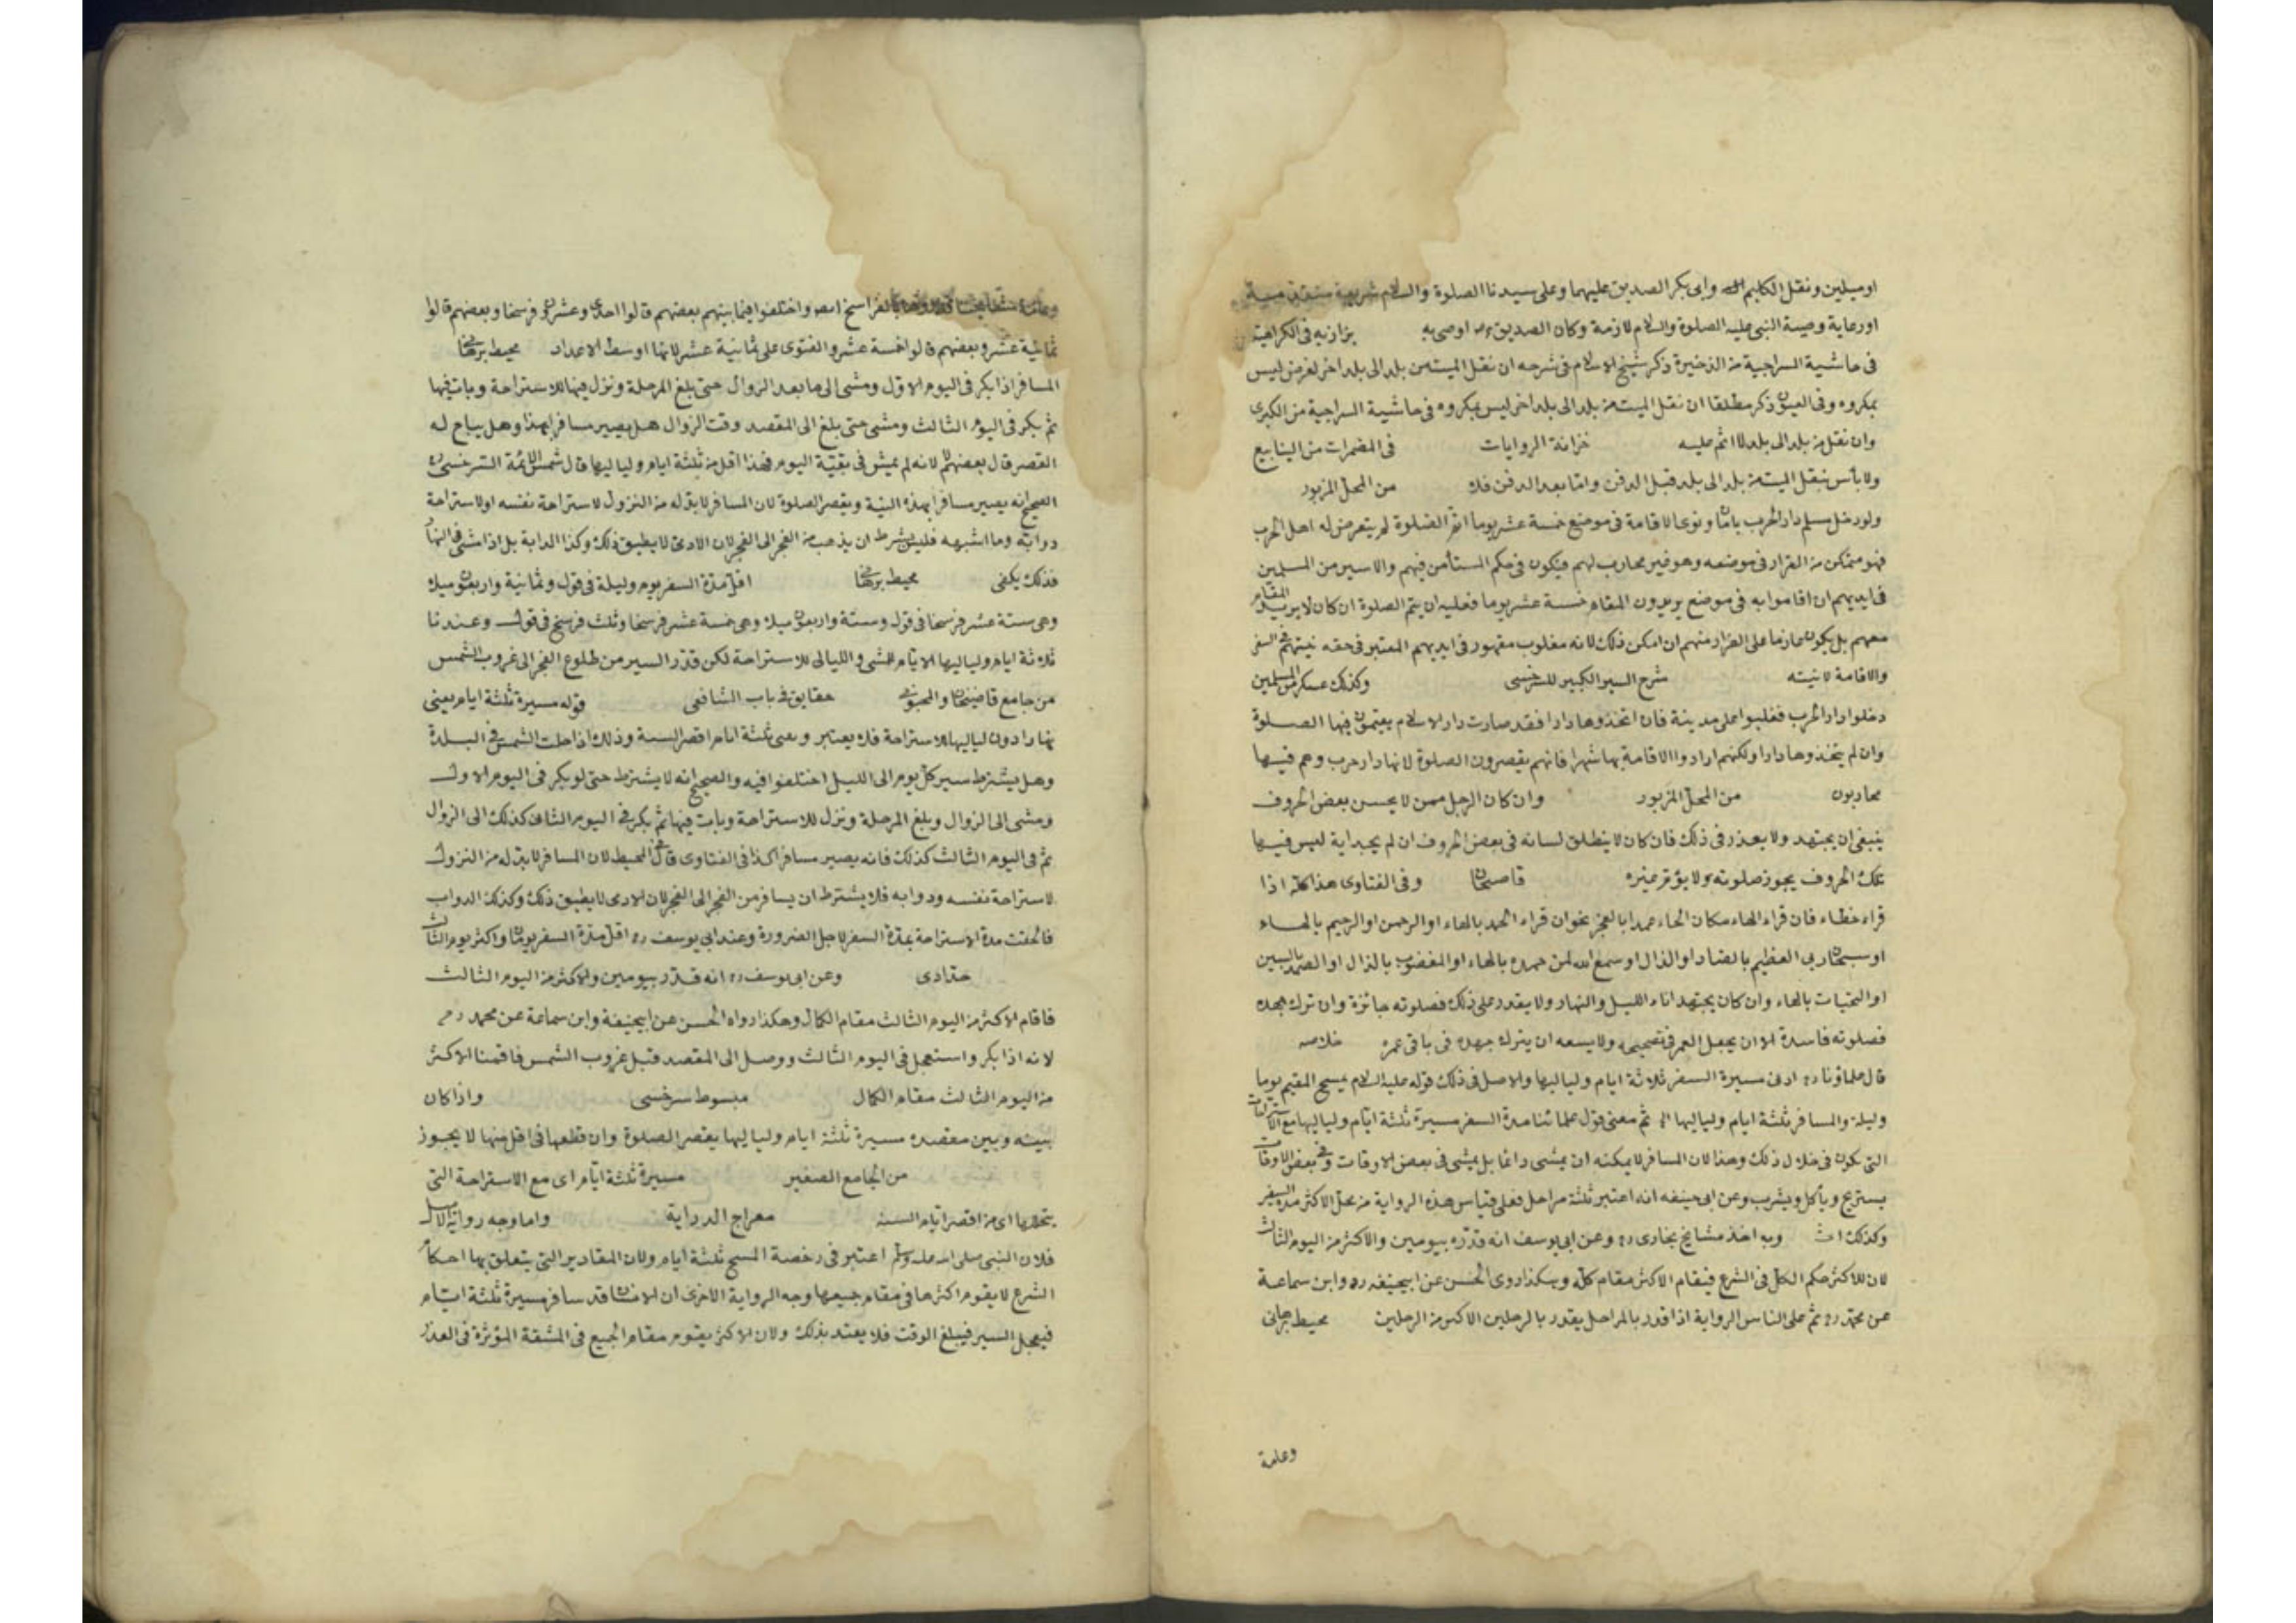 او ميلين ونقل الكليم وابى بكر الصديق عليهما وعلى سيدنا الصلوة والسلام شريعة
او رعاية وصية النبى عليه الصلوة والسلام لازمة وكان الصديق رضه اوصى به بزازيه فى الكراهية
فى حاشية السراجية من الذخيرة ذكر شيخ الاسلام فى شرحه ان نقل الميت من بلد الى بلد اخر لغرض ليس
بمكروه وفى العيون ذكر مطلقا ان نقل الميت من بلد الى بلد اخر ليس بمكروه فى حاشية السراجية من الكبرى
وان نقل من بلد الى بلد لا اثم عليه خزانة الروايات فى المضمرات من الينابيع
ولا بأس بنقل الميت من بلد الى بلد قبل الدفن واما بعد الدفن فلا من المحل المزبور
ولو دخل مسلم دار الحرب بامان ونوى الاقامة فى موضع خمسة عشر يوما اتم الصلوة لم يتعرض له اهل الحرب
فهو متمكن من القرار فى موضعه وهو غير محارب لهم فيكون فى حكم المستأمن فيهم والاسير من المسلمين
فى ايديهم ان اقاموا به فى موضع يريدون المقام خمسة عشر يوما فعليه ان يتم الصلوة ان كان لا يريد المقام
معهم بل يكون عازما على الفرار منهم ان امكن ذلك لانه مغلوب مقهور فى ايديهم المعتبر فى حقه نيتهم فى السفر
والاقامة لا نيته شرح السير الكبير للسرخسى وكذلك عسكر من المسلمين
دخلوا دار الحرب فغلبوا على مدينة فان اتخذوها دارا فقد صارت دار الاسلام يتمون فيها الصلوة
وان لم يتخذوها دارا ولكنهم ارادوا الاقامة بها شهرا فانهم يقصرون الصلوة لانها دار حرب وهم فيها
محاربون من المحل المزبور وان كان الرجل ممن لا يحسن بعض الحروف
ينبغى ان يجتهد ولا يعذر فى ذلك فان كان لا ينطلق لسانه فى بعض الحروف ان لم يجد اية ليس فيها
تلك الحروف يجوز صلوته ولا يؤم غيره قاضيخان وفى الفتاوى هذا كله اذا
قراء خطاء فان قراء الهاء مكان الحاء عمدا بالعجز نحو ان قراء الحمد بالهاء او الرحمن او الرحيم بالهاء
او سبحان ربى العظيم بالضاد او الذال او سمع الله لمن حمده بالهاء او المغضوب بالذال او الصمد بالسين
او التحيات بالهاء وان كان يجتهد اناء الليل والنهار ولا يقدر على ذلك فصلوته جائزة وان ترك جهده
فصلوته فاسدة الا ان يجعل العمر فى تصحيحه ولا يسعه ان يترك جهده فى باقى عمره خلاصه
قال علماؤنا ره ادنى مسيرة السفر ثلاثة ايام ولياليها والاصل فى ذلك قوله عليه السلام يمسح المقيم يوما
وليلة والمسافر ثلثة ايام ولياليها ثم معنى قول علمائنا مدة السفر مسيرة ثلثة ايام ولياليها مع الاستراحات
التى تكون فى خلال ذلك وهذا لان المسافر لا يمكنه ان يمشى دائما بل يمشى فى بعض الاوقات وفى بعض الاوقات
يستريح ويأكل ويشرب وعن ابى حنيفه انه اعتبر ثلثة مراحل فعلى قياس هذه الرواية من جعل الاكثر مدة السفر
وكذلك وبه اخذ مشايخ بخارى ره وعن ابى يوسف انه قدره بيومين والاكثر من اليوم الثالث
لان للاكثر حكم الكل فى الشرع فيقام الاكثر مقام كله وهكذا روى الحسن عن ابيحنيفه ره وابن سماعة
عن محمد ره ثم على الناس الرواية اذا قدر بالمراحل يقدر بالرحلين الاكثر من الرحلين محيط برهانى
وعامة
وعامة مشايخنا قدروها بالفراسخ ايضا واختلفوا فيما بينهم بعضهم قالوا احدى وعشرون فرسخا وبعضهم قالوا
ثمانية عشر وبعضهم قالوا خمسة عشر والفتوى على ثمانية عشر لانها اوسط الاعداد محيط برهانى
المسافر اذا بكر فى اليوم الاول ومشى الى ما بعد الزوال حتى بلغ المرحلة ونزل فيها للاستراحة وبات فيها
ثم بكر فى اليوم الثالث ومشى حتى بلغ الى المقصد وقت الزوال هل يصير مسافرا بهذا وهل يباح له
القصر قال بعضهم لا لانه لم يمش فى بقية اليوم فهذا اقل من ثلثة ايام ولياليها قال شمس الائمة السرخسى ره
الصحيح انه يصير مسافرا بهذه النية ويقصر الصلوة لان المسافر لا بد له من النزول لاستراحة نفسه او لاستراحة
دوابه وما اشبهه فليس شرط ان يذهب من الفجر الى الفجر لان الادمى لا يطيق ذلك وكذا الدابة بل اذا مشى فى النهار
فذلك يكفى محيط برهانى اقل مدة السفر يوم وليلة فى قول وثمانية واربعون ميلا
وهى ستة عشر فرسخا فى قول وستة واربعون ميلا وهى خمسة عشر فرسخا وثلث فرسخ فى قول وعندنا
ثلاثة ايام ولياليها الايام للمشى والليالى للاستراحة لكن قدر السير من طلوع الفجر الى غروب الشمس
من جامع قاضيخان والمحبوبى حقايق فى باب الشافعى قوله مسيرة ثلثة ايام يعنى
نهارا دون لياليها للاستراحة فلا يعتبر ويعنى ثلثة ايام اقصر السنة وذلك اذا حلت الشمس فى البلدة
وهل يشترط سير كل يوم الى الليل اختلفوا فيه والصحيح انه لا يشترط حتى لو بكر فى اليوم الاول
ومشى الى الزوال وبلغ المرحلة ونزل للاستراحة وبات فيها ثم بكر فى اليوم الثانى كذلك الى الزوال
ثم فى اليوم الثالث كذلك فانه يصير مسافرا كذا فى الفتاوى قال فى المحيط لان المسافر لا بد له من النزول
لاستراحة نفسه ودوابه فلا يشترط ان يسافر من الفجر الى الفجر لان الادمى لا يطيق ذلك وكذلك الدواب
فالحقت مدة الاستراحة بمدة السفر لاجل الضرورة وعند ابى يوسف ره اقل مدة السفر يومان واكثر يوم الثالث
حدادى وعن ابى يوسف ره انه قدر بيومين والاكثر من اليوم الثالث
فاقام الاكثر من اليوم الثالث مقام الكمال وهكذا رواه الحسن عن ابيحنيفة وابن سماعة عن محمد رح
لانه اذا بكر واستعجل فى اليوم الثالث ووصل الى المقصد قبل غروب الشمس فاقمنا الاكثر
من اليوم الثالث مقام الكمال مبسوط سرخسى واذا كان
بينه وبين مقصده مسيرة ثلثة ايام ولياليها يقصر الصلوة وان قطعها فى اقل منها لا يجوز
من الجامع الصغير مسيرة ثلثة ايام اى مع الاستراحة التى
يتخللها اى من اقصر ايام السنة معراج الدراية واما وجه رواية الاصل
فلان النبى صلى الله عليه وسلم اعتبر فى رخصة المسح ثلثة ايام ولان المقادير التى يتعلق بها احكام
الشرع لا يقوم اكثرها فى مقام جميعها وجه الرواية الاخرى ان الانسان قد سافر مسيرة ثلثة ايام
فيعجل السير فيبلغ الوقت فلا يعتد بذلك ولان الاكثر يقوم مقام الجميع فى المشقة المؤثرة فى العذر